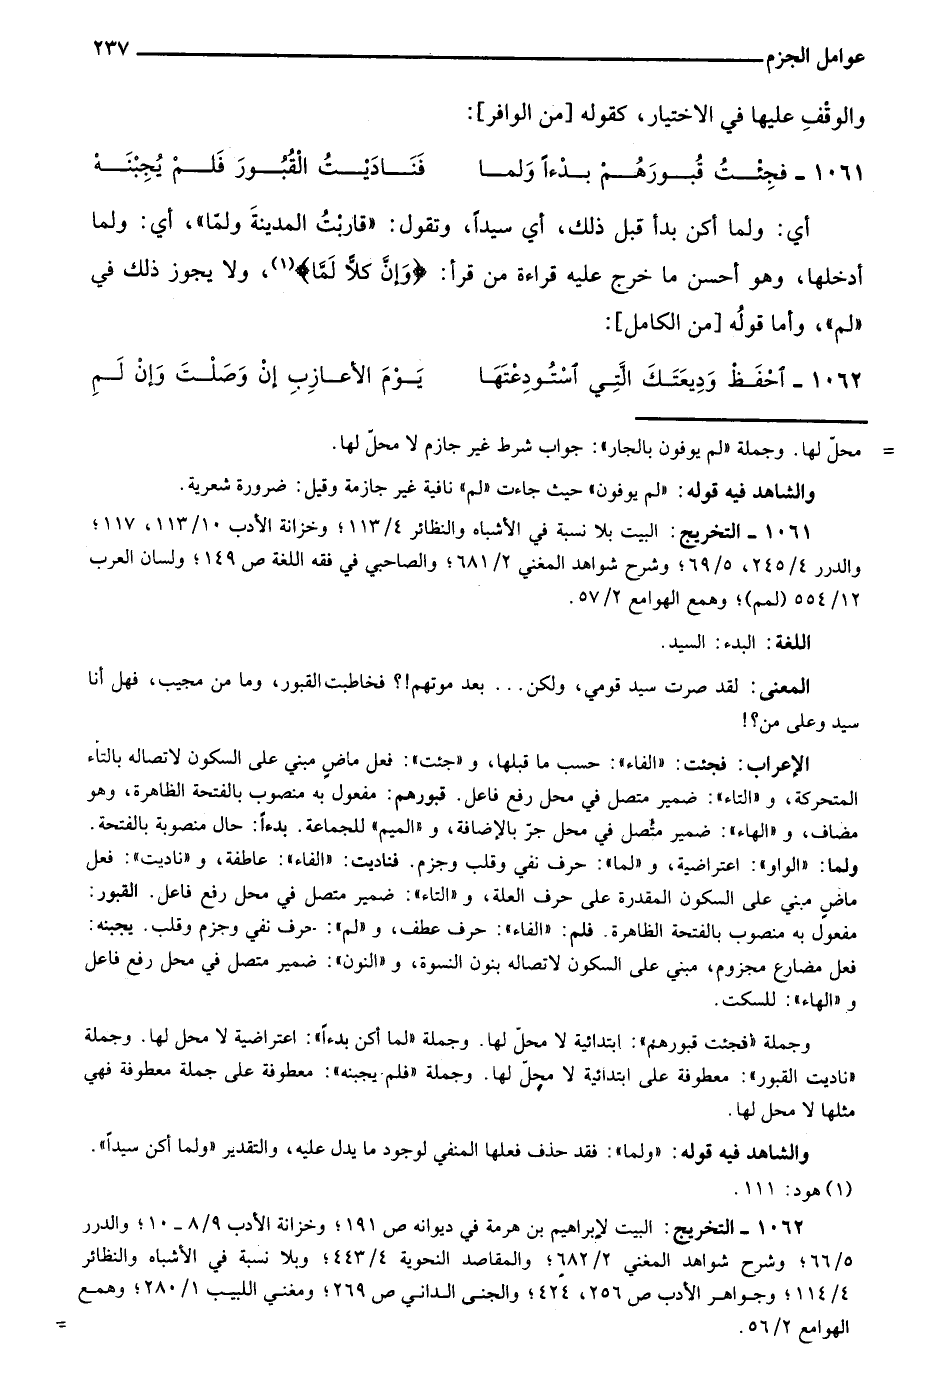 عوامل الجزم ــــــــــــــــــــــــــــــــــــــــ ٢٣٧
والوقْفِ عليها في الاختيار، كقوله [من الوافر]:
١٠٦١ ـ فجِئْتُ قُبورَهُمْ بدْءاً وَلما فَنَادَيْتُ الْقُبُورَ فَلمْ يُجِبْنَهْ
أي: ولما أكن بدأ قبل ذلك، أي سيداً، وتقول: «قاربْتُ المدينةَ ولمّا»، أي: ولما
أدخلها، وهو أحسن ما خرج عليه قراءة من قرأ: ﴿وَإنَّ كلاًّ لَمَّا﴾(١)، ولا يجوز ذلك في
«لم»، وأما قولُه [من الكامل]:
١٠٦٢ ـ ٱحْفَظْ وَدِيعَتَكَ الَّتِي ٱسْتُودِعْتَهَا يَوْمَ الأعازِبِ إنْ وَصَلْتَ وَإنْ لَمِ
= محلّ لها. وجملة «لم يوفون بالجار»: جواب شرط غير جازم لا محلّ لها.
والشاهد فيه قوله: «لم يوفون» حيث جاءت «لم» نافية غير جازمة وقيل: ضرورة شعرية.
١٠٦١ ـ التخريج: البيت بلا نسبة في الأشباه والنظائر ١١٣/٤؛ وخزانة الأدب ١١٣/١٠، ١١٧؛
والدرر ٢٤٥/٤، ٦٩/٥؛ وشرح شواهد المغني ٦٨١/٢؛ والصاحبي في فقه اللغة ص ١٤٩؛ ولسان العرب
٥٥٤/١٢ (لمم)؛ وهمع الهوامع ٥٧/٢.
اللغة: البدء: السيد.
المعنى: لقد صرت سيد قومي، ولكن... بعد موتهم!؟ فخاطبت القبور، وما من مجيب، فهل أنا
سيد وعلى من؟!
الإعراب: فجئت: «الفاء»: حسب ما قبلها، و «جئت»: فعل ماضٍ مبني على السكون لاتصاله بالتاء
المتحركة، و «التاء»: ضمير متصل في محل رفع فاعل. قبورهم: مفعول به منصوب بالفتحة الظاهرة، وهو
مضاف، و «الهاء»: ضمير متّصل في محل جرّ بالإضافة، و «الميم» للجماعة. بدءاً: حال منصوبة بالفتحة.
ولما: «الواو»: اعتراضية، و «لما»: حرف نفي وقلب وجزم. فناديت: «الفاء»: عاطفة، و «ناديت»: فعل
ماضٍ مبني على السكون المقدرة على حرف العلة، و «التاء»: ضمير متصل في محل رفع فاعل. القبور:
مفعول به منصوب بالفتحة الظاهرة. فلم: «الفاء»: حرف عطف، و «لم»: حرف نفي وجزم وقلب. يجبنه:
فعل مضارع مجزوم، مبني على السكون لاتصاله بنون النسوة، و «النون»: ضمير متصل في محل رفع فاعل
و «الهاء»: للسكت.
وجملة «فجئت قبورهم»: ابتدائية لا محلّ لها. وجملة «لما أكن بدءاً»: اعتراضية لا محل لها. وجملة
«ناديت القبور»: معطوفة على ابتدائية لا محلّ لها. وجملة «فلم يجبنه»: معطوفة على جملة معطوفة فهي
مثلها لا محل لها.
والشاهد فيه قوله: «ولما»: فقد حذف فعلها المنفي لوجود ما يدل عليه، والتقدير «ولما أكن سيداً».
(١) هود: ١١١.
١٠٦٢ ـ التخريج: البيت لإبراهيم بن هرمة في ديوانه ص ١٩١؛ وخزانة الأدب ٨/٩ ـ ١٠؛ والدرر
٦٦/٥؛ وشرح شواهد المغني ٦٨٢/٢؛ والمقاصد النحوية ٤٤٣/٤؛ وبلا نسبة في الأشباه والنظائر
١١٤/٤؛ وجواهر الأدب ص ٢٥٦، ٤٢٤؛ والجنى الداني ص ٢٦٩؛ ومغني اللبيب ٢٨٠/١؛ وهمع
الهوامع ٥٦/٢. =